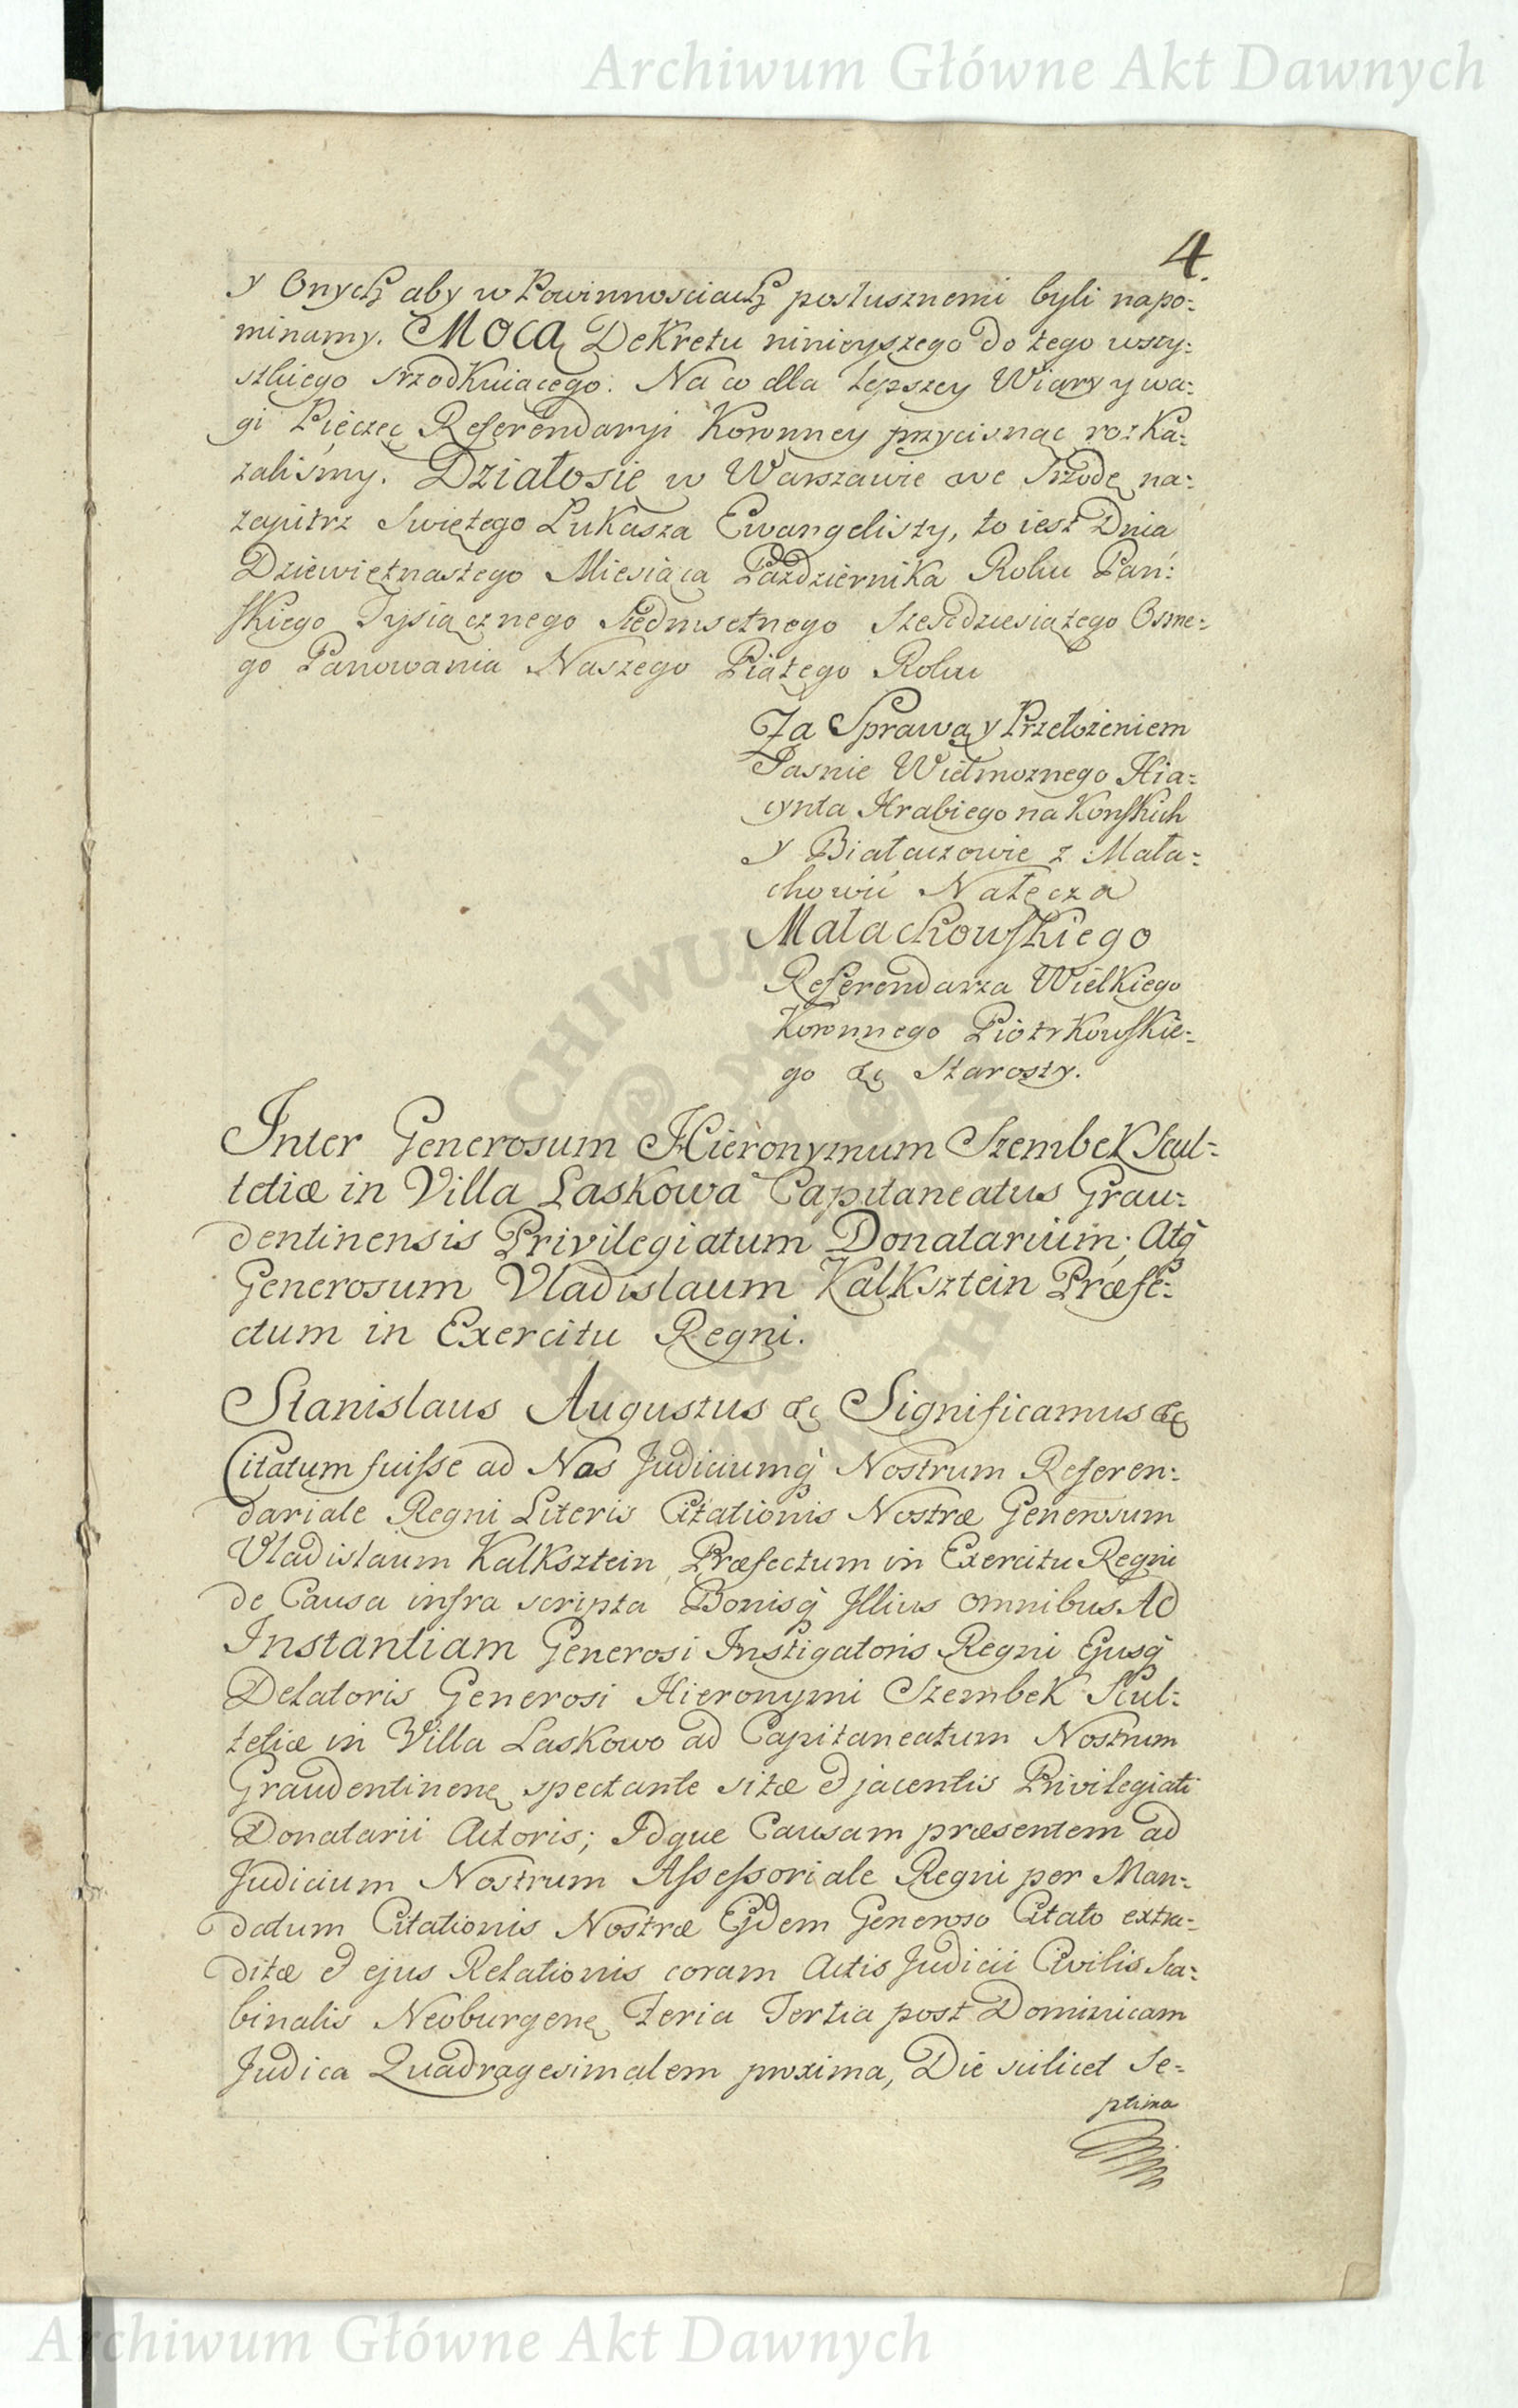 Archiwum Główne Akt Dawnych
4.
y Onych aby w Powinnosciach posłusznemi byli napo:
minamy. Mocą Dekretu ninieyszego do tego wszy:
stkiego srzodkuiącego. Na co dla lepszey Wiary y wa:
gi Pieczęć Referendaryi Koronney przycisnąc rozka:
zaliśmy. Działosie w Warszawie we Srzodę na:
zaiutrz Swiętego Łukasza Ewangelisty, to iest Dnia
Dziewiętnastego Miesiąca Października Roku Pań:
skiego Tysiącznego Siedmsetnego Szescdziesiątego Osme:
go Panowania Naszego Piątego Roku
Za Sprawą y Przełożeniem
Jasnie Wielmoznego Hia:
cynta Hrabiego na Konskich
y Białaczowie z Mała:
chowic Nałęcza
Małachowskiego
Referendarza Wielkiego
Koronnego Piotrkowskie:
go &c Starosty.
Inter Generosum Hieronymum Szembek Scul:
tetiæ in Villa Laskowa Capitaneatus Grau:
dentinensis Privilegiatum Donatarium; Atq̀
Generosum Vladislaum Kalksztein Præfe:
ctum in Exercitu Regni.
Stanislaus Augustus &c Significamus &c
Citatum fuisse ad Nos Judiciumq̀ Nostrum Referen:
dariale Regni Literis Citationis Nostræ Generosum
Vladislaum Kalksztein Præfectum in Exercitu Regni
de Causa infra scripta Bonisq̀ Illius omnibus Ad
Instantiam Generosi Instigatoris Regni Ejusq̀
Delatoris Generosi Hieronymi Szembek Scul:
tetiæ in Villa Laskowo ad Capitaneatum Nostrum
Graudentinenę spectante sitæ & jacentis Privilegiati
Donatarii Actoris; Idque Causam præsentem ad
Judicium Nostrum Assessoriale Regni per Man:
datum Citationis Nostræ Ejdem Generoso Citato extra:
ditæ & ejus Relationis coram Actis Judicii Civilis Sca:
binalis Neoburgenę Feria Tertia post Dominicam
Judica Quadragesimalem proxima, Die scilicet Se:
ptima
Archiwum Główne Akt Dawnych